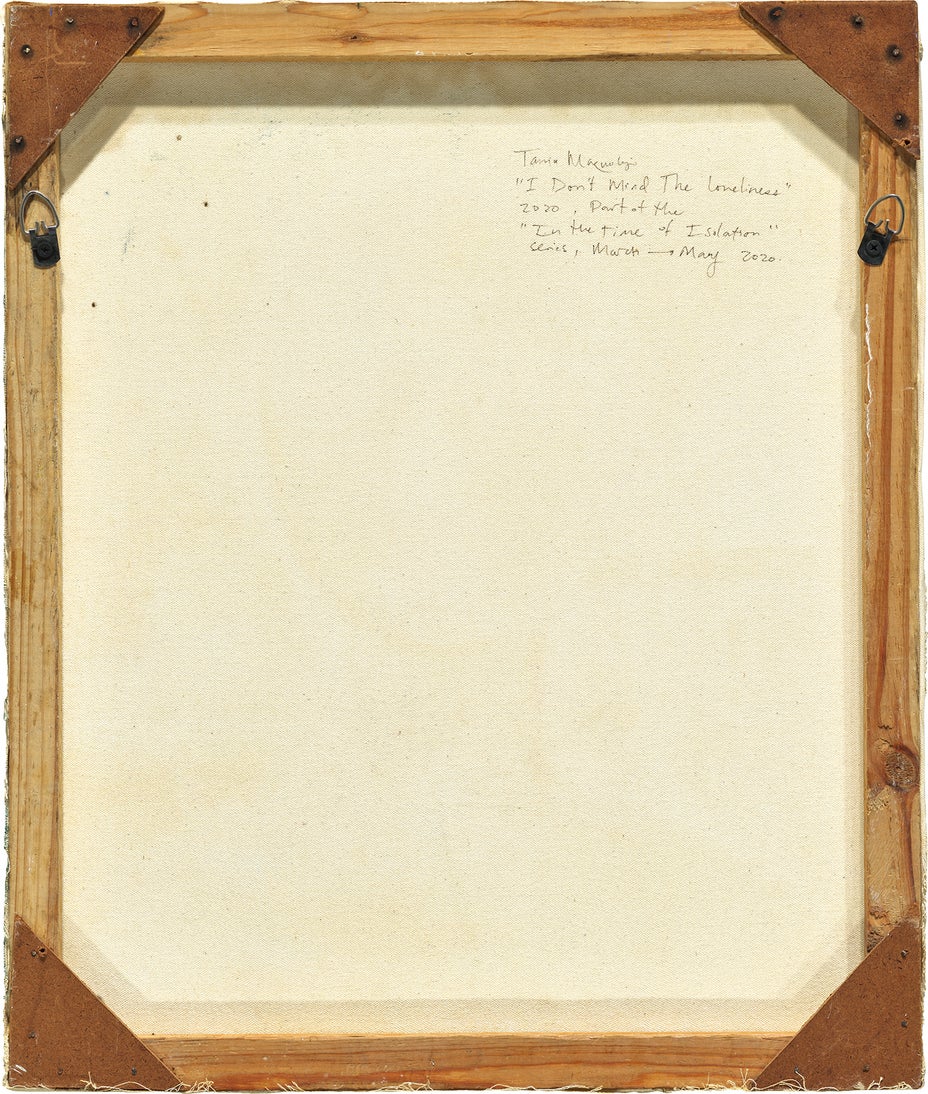 Tania Marmolejo
"I Don't Mind The Loneliness"
2020, Part of the
"In the time of Isolation"
series, March → May 2020.